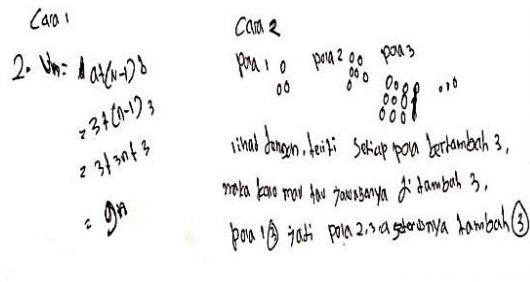 Cara 1
2. Un = a+(n-1) b
= 3+(n-1) 3
= 3+3n+3
= 9n
Cara 2
pola 1 pola 2 pola 3
lihat dengan teliti setiap pola bertambah 3,
maka kalo mau tau jawabanya di tambah 3,
pola 1 3 jadi pola 2,3 seterusnya tambah 3